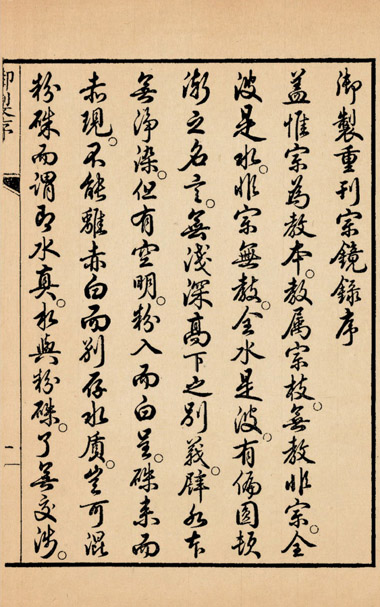 御製重刊宗鏡錄序
蓋惟宗為教本。教屬宗枝。無教非宗。全
波是水。非宗無教。全水是波。有偏圓頓
漸之名言。無淺深高下之別義。譬水本
無淨染。但有空明。粉入而白呈。硃来而
赤現。不能離赤白而別存水質。豈可混
粉硃而謂即水真。水與粉硃。了無交涉。
御製序
二